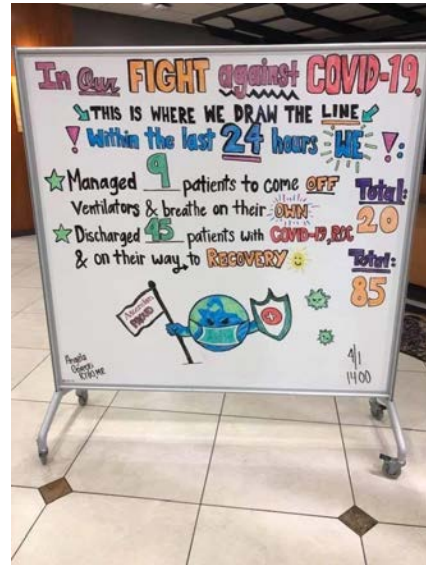 In Our FIGHT against COVID-19,
THIS IS WHERE WE DRAW THE LINE
! Within the last 24 hours WE !:
Managed 9 patients to come OFF
Ventilators & breathe on their OWN
Total:
20
Discharged 45 patients with COVID-19, ROC
& on their way to RECOVERY
Total:
85
Ascension
PROUD
Angela
4/1
1400